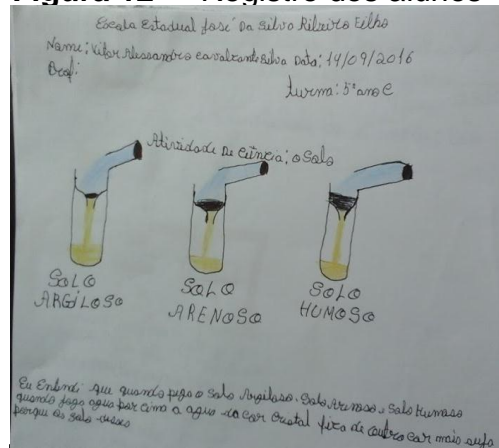 Figura 12 - Registro dos alunos
Escola Estadual José Da Silva Ribeiro Filho
Nome: Vitor Alessandro cavalcanti silva Data: 14/09/2016
Prof:
turma: 5º ano C
Atividade De Ciência: o Solo
SOLO ARGILOSO
SOLO ARENOSO
SOLO HUMOSO
Eu Entendi que quando pego o Solo Argiloso. Solo Arenoso e Solo Humoso
quando jogo agua por cima a agua da cor cristal fica de outra cor mais suja
porque os solo